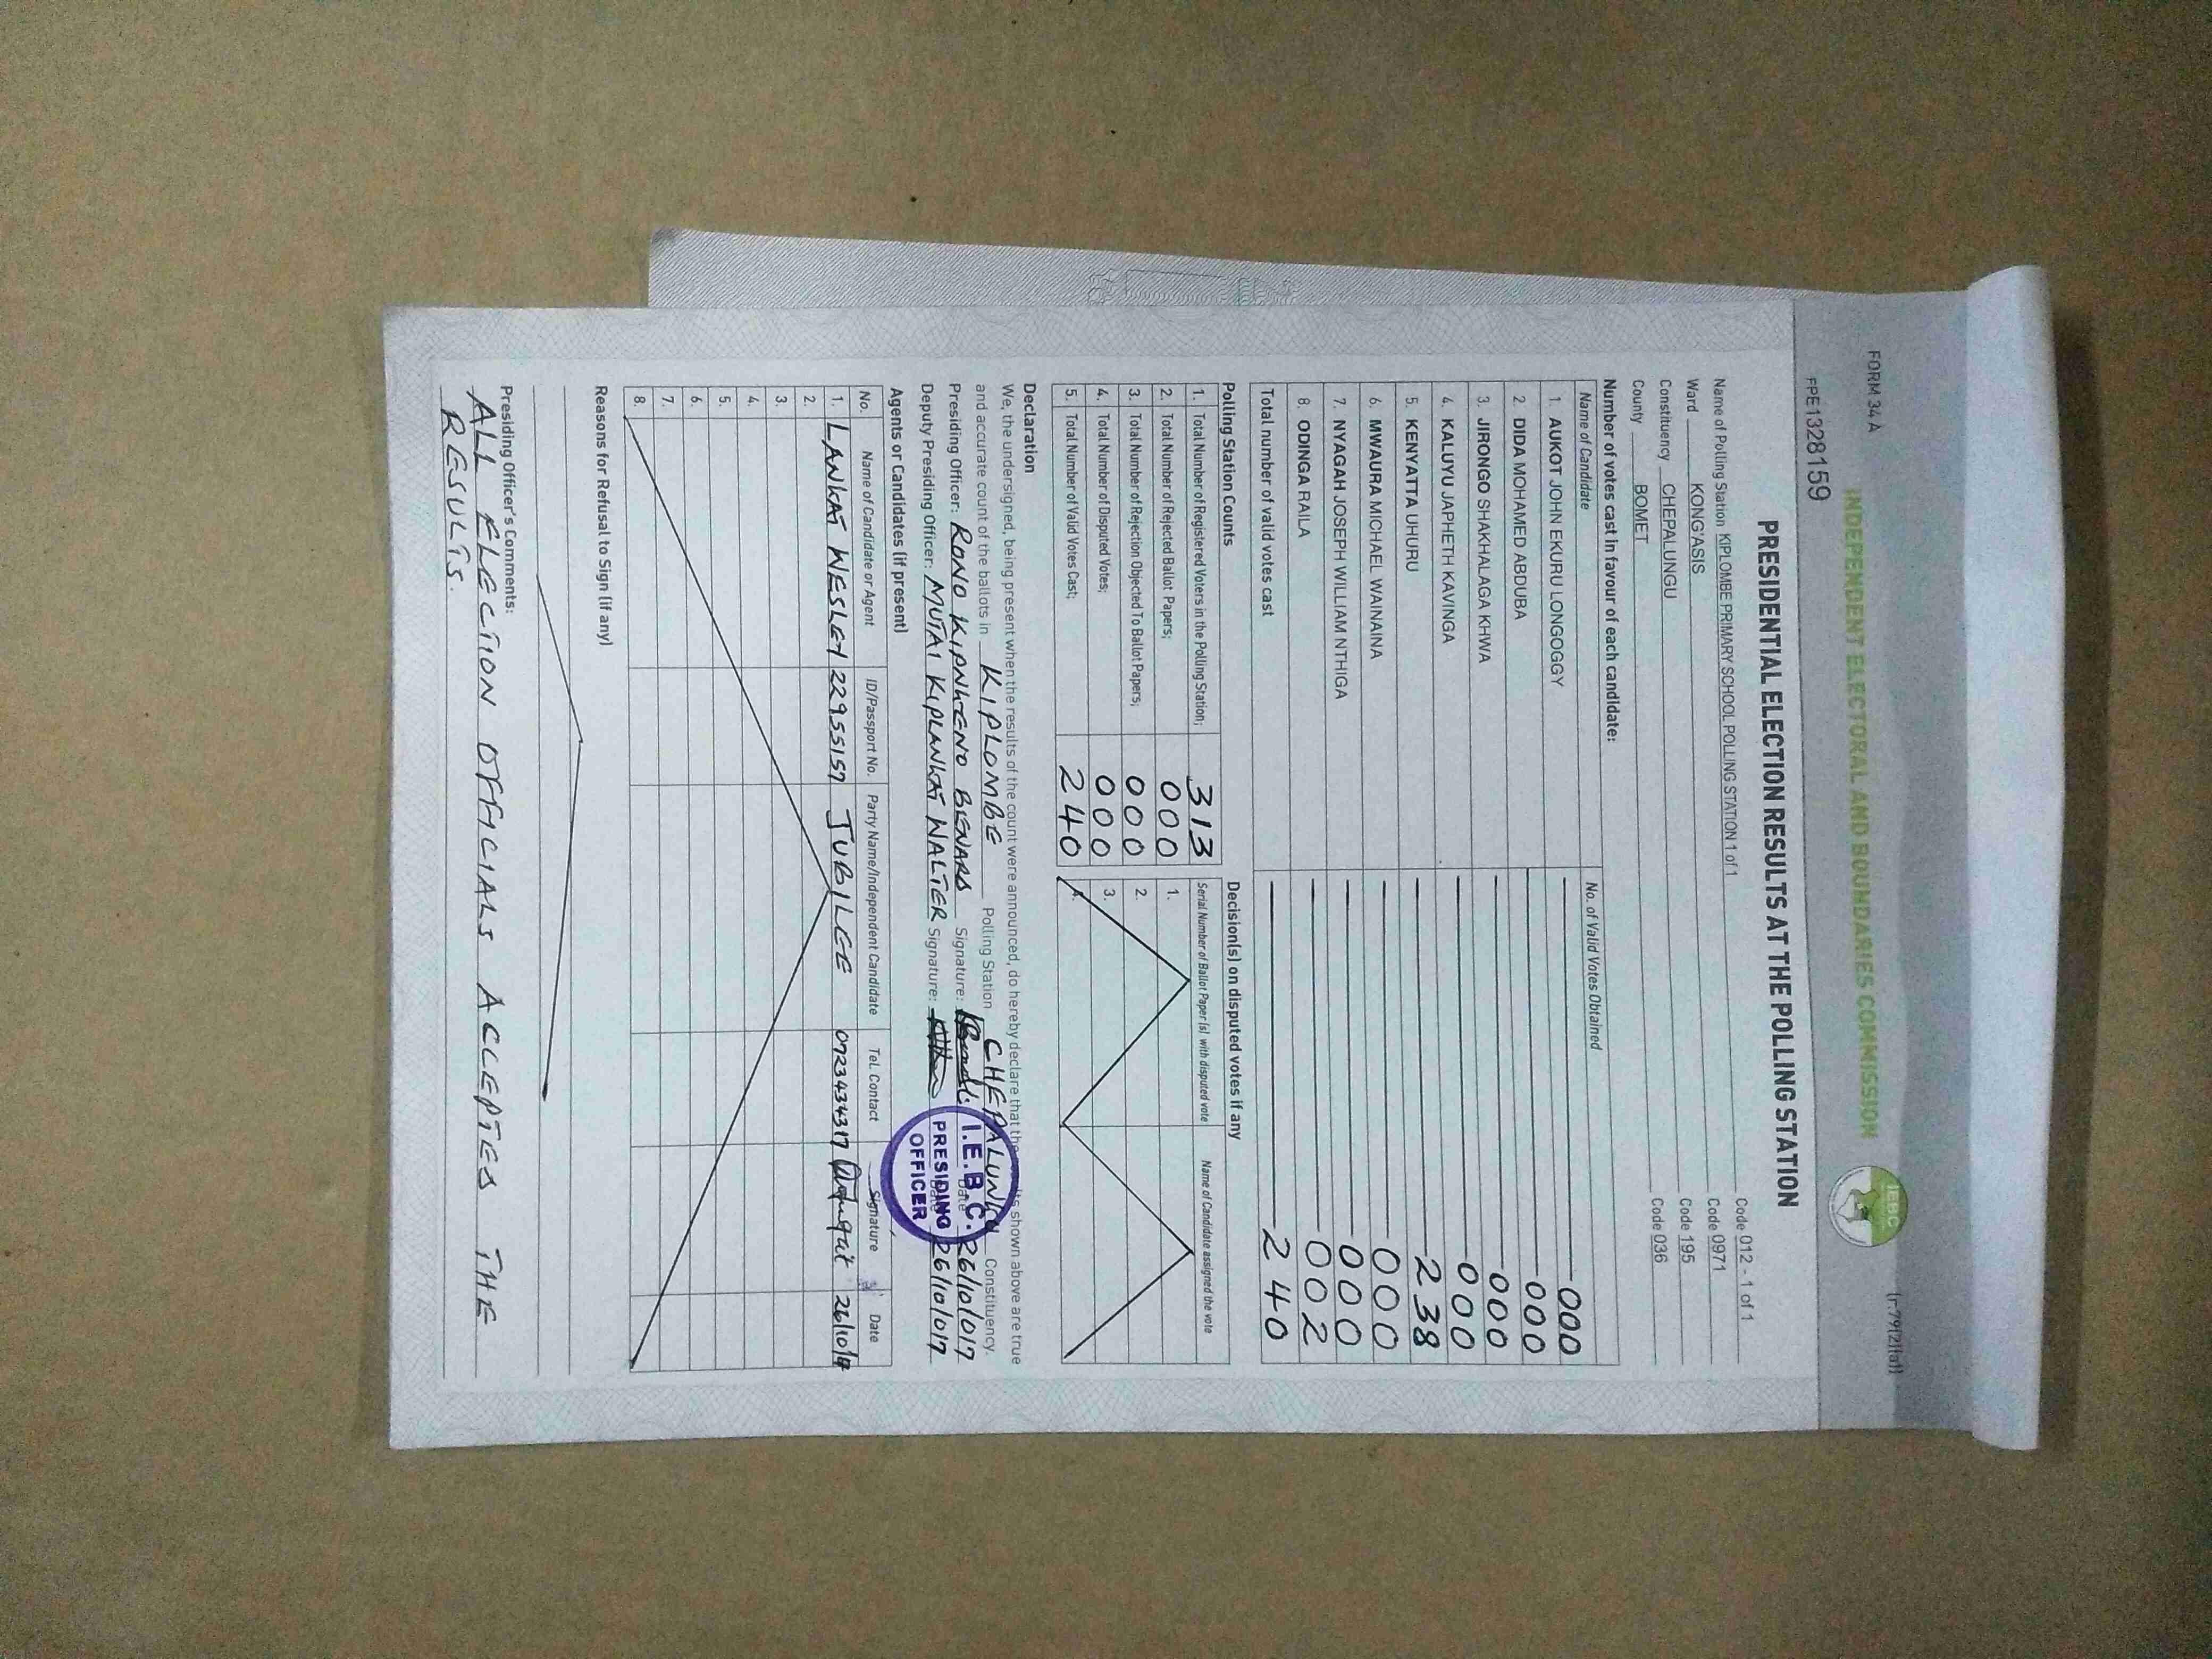 FORM 34A
(r.79(2)(a))
INDEPENDENT ELECTORAL AND BOUNDARIES COMMISSION
IEBC
FPE1328159
PRESIDENTIAL ELECTION RESULTS AT THE POLLING STATION
Name of Polling Station KIPLOMBE PRIMARY SCHOOL POLLING STATION 1 of 1 Code 012 - 1 of 1
Ward KONG'ASIS Code 0971
Constituency CHEPALUNGU Code 195
County BOMET Code 036
Number of votes cast in favour of each candidate:
Name of Candidate No. of Valid Votes Obtained
1. AUKOT JOHN EKURU LONGOGGY 000
2. DIDA MOHAMED ABDUBA 000
3. JIRONGO SHAKHALAGA KHWA 000
4. KALUYU JAPHETH KAVINGA 000
5. KENYATTA UHURU 238
6. MWAURA MICHAEL WAINAINA 000
7. NYAGAH JOSEPH WILLIAM NTHIGA 000
8. ODINGA RAILA 002
Total number of valid votes cast 240
Polling Station Counts
1. Total Number of Registered Voters in the Polling Station; 313
2. Total Number of Rejected Ballot Papers; 000
3. Total Number of Rejection Objected To Ballot Papers; 000
4. Total Number of Disputed Votes; 000
5. Total Number of Valid Votes Cast; 240
Decision(s) on disputed votes if any
Serial Number of Ballot Paper (s) with disputed vote Name of Candidate assigned the vote
1.
2.
3.
4.
Declaration
We, the undersigned, being present when the results of the count were announced, do hereby declare that the results shown above are true
and accurate count of the ballots in KIPLOMBE Polling Station CHEPALUNGU Constituency.
Presiding Officer: RONO KIPNGENO Signature: Date 26/10/017
Deputy Presiding Officer: MUTAI KIPLANGAT WALTER Signature: Date 26/10/017
I.E.B.C.
PRESIDING
OFFICER
Agents or Candidates (if present)
No. Name of Candidate or Agent ID/Passport No. Party Name/Independent Candidate Tel. Contact Signature Date
1. LANGAT WESLEY 22955157 JUBILEE 0723434317 26/10/17
2.
3.
4.
5.
6.
7.
8.
Reasons for Refusal to Sign (if any)
Presiding Officer's Comments:
ALL ELECTION OFFICIALS ACCEPTED THE
RESULTS.